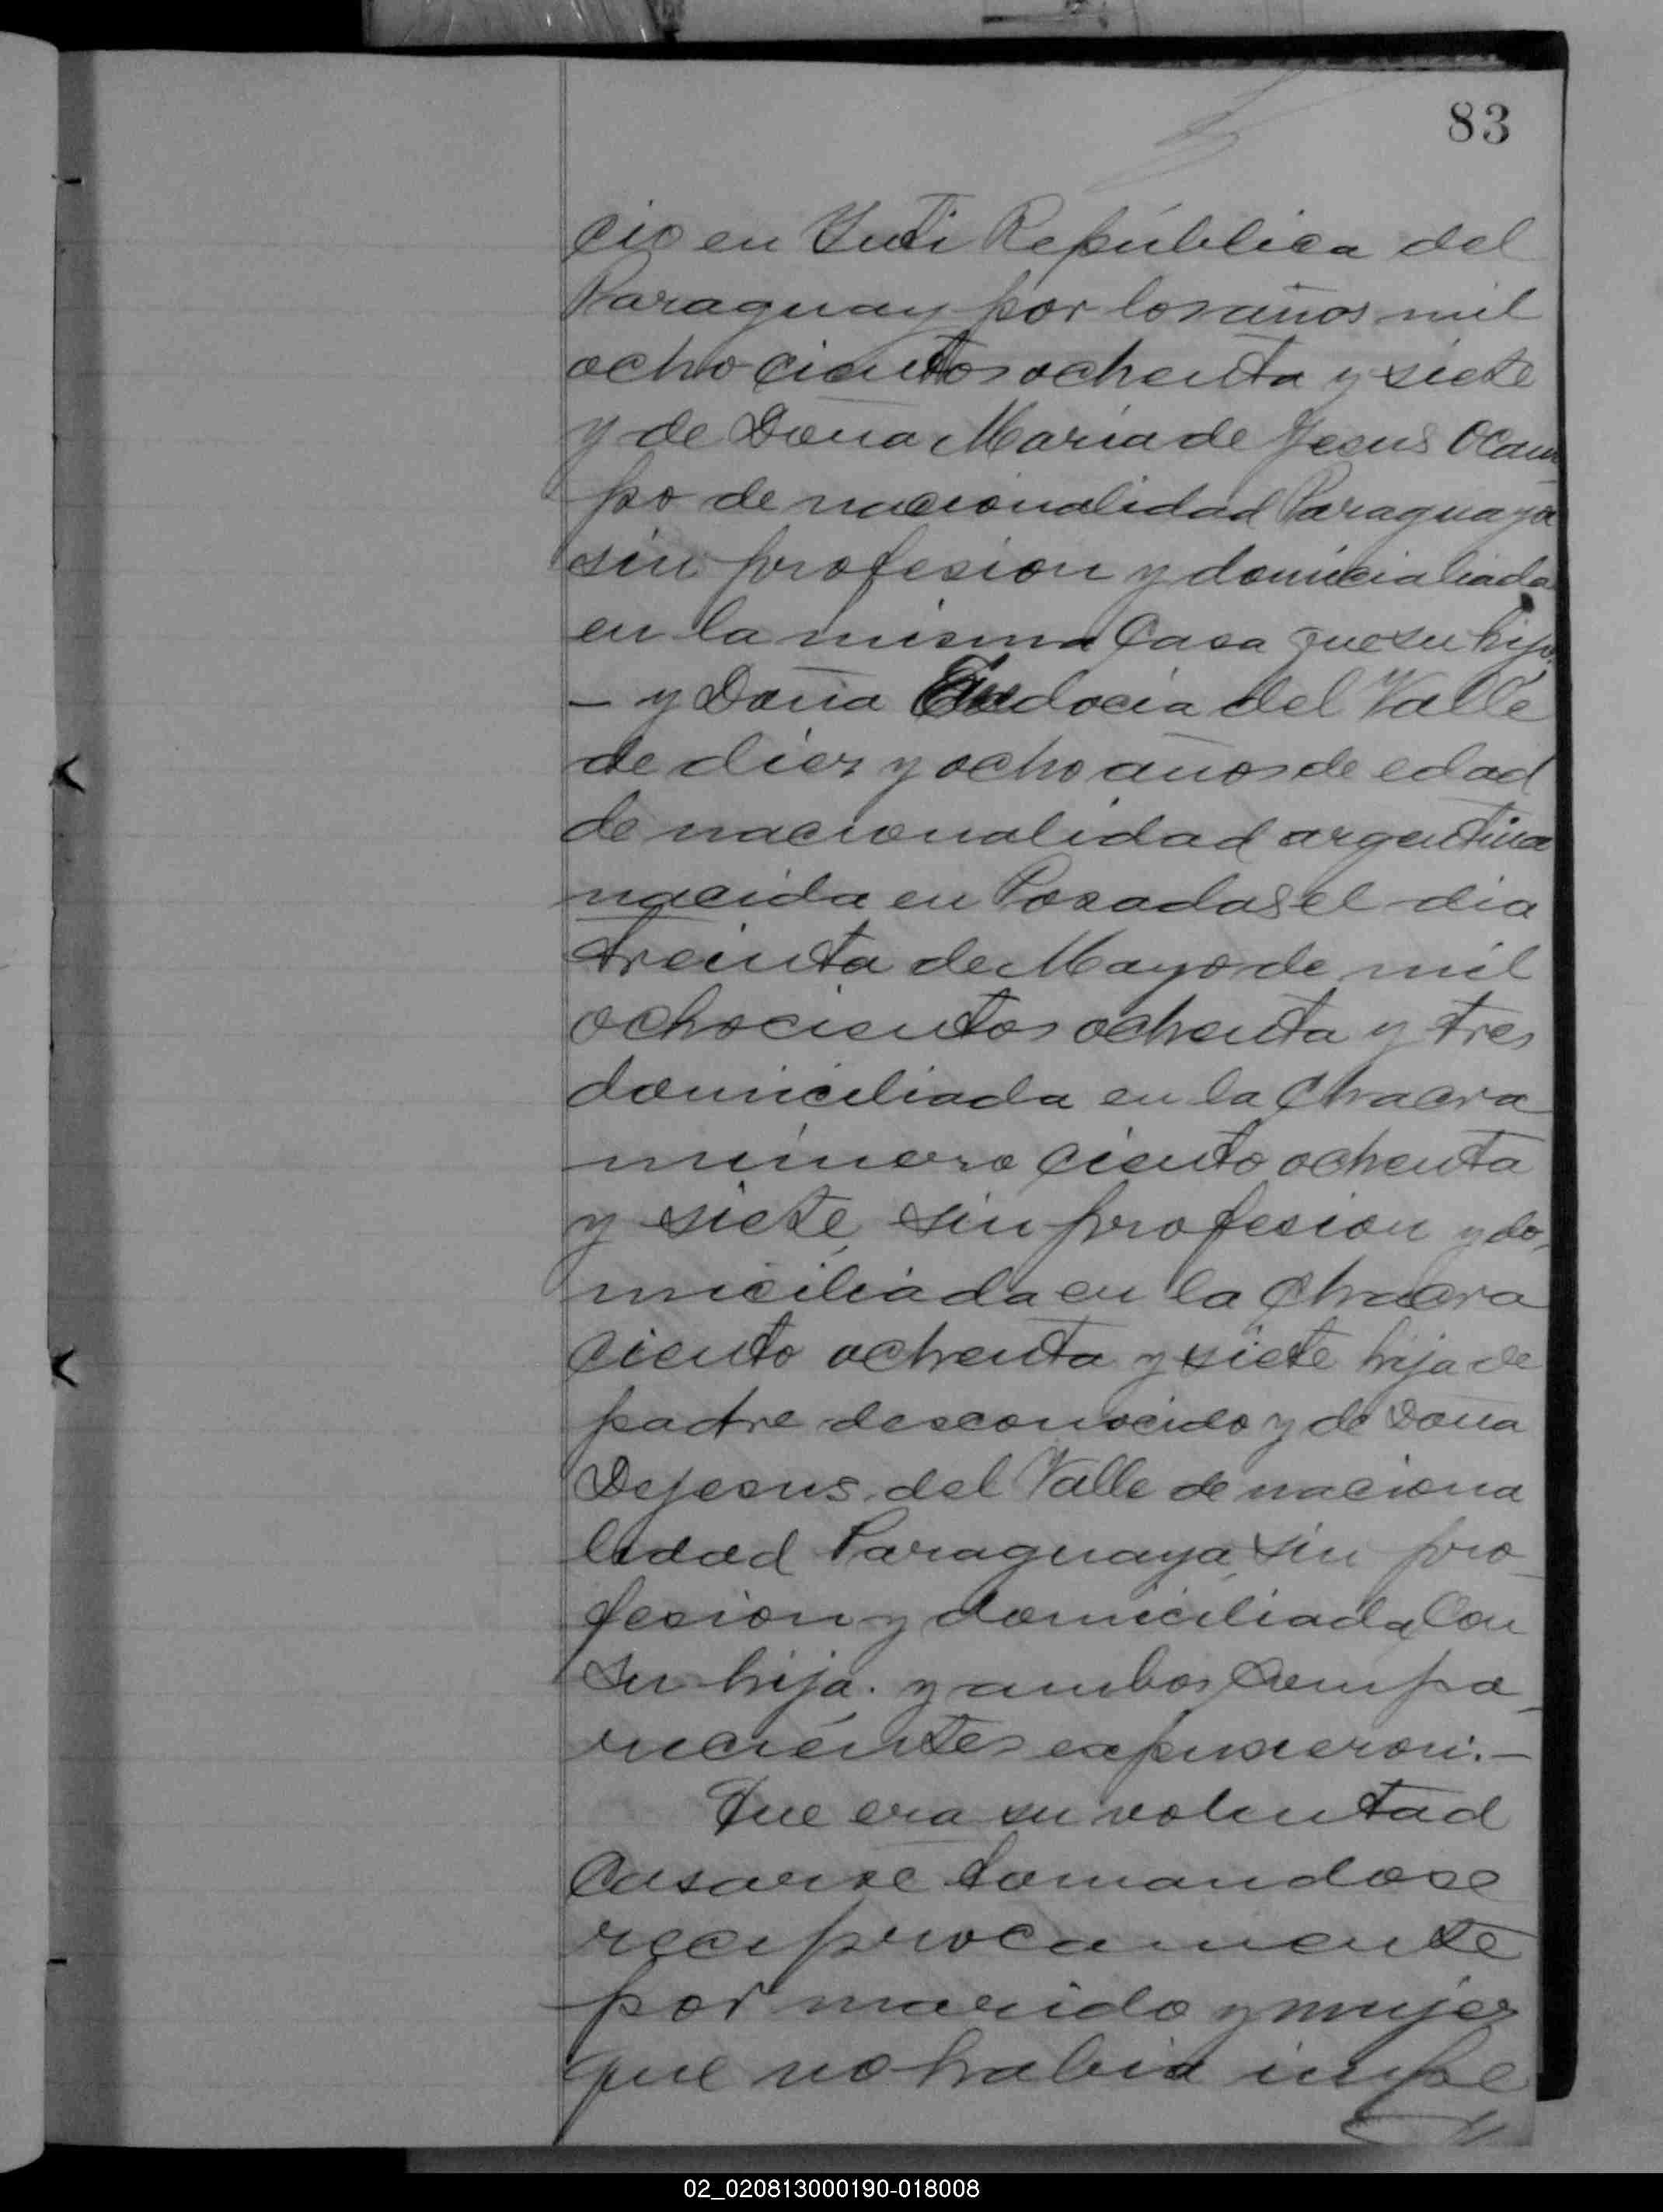 83
cio en Yuti República del
Paraguay por los años mil
ochocientos ochenta y siete
y de Doña Maria de Jesus Ocam
po de nacionalidad Paraguaya
sin profesion y domicialiada
en la misma Casa que su hijo.
— y Doña Eudocia del Valle
de diez y ocho años de edad
de nacionalidad argentina
nacida en Posadas el dia
treinta de Mayo de mil
ochocientos ochenta y tres
domiciliada en la Chacra
número ciento ochenta
y siete sin profesion y do-
miciliada en la Chacra
ciento ochenta y siete hija de
padre desconocido y de Doña
Dejesus del Valle de naciona
lidad Paraguaya sin pro-
fesion y domiciliada Con
su hija. y ambos Compa-
recientes expusieron:.—
Que era su voluntad
Casarse tomandose
reciprocamente
por marido y mujer
que no habia impe
02_020813000190-018008